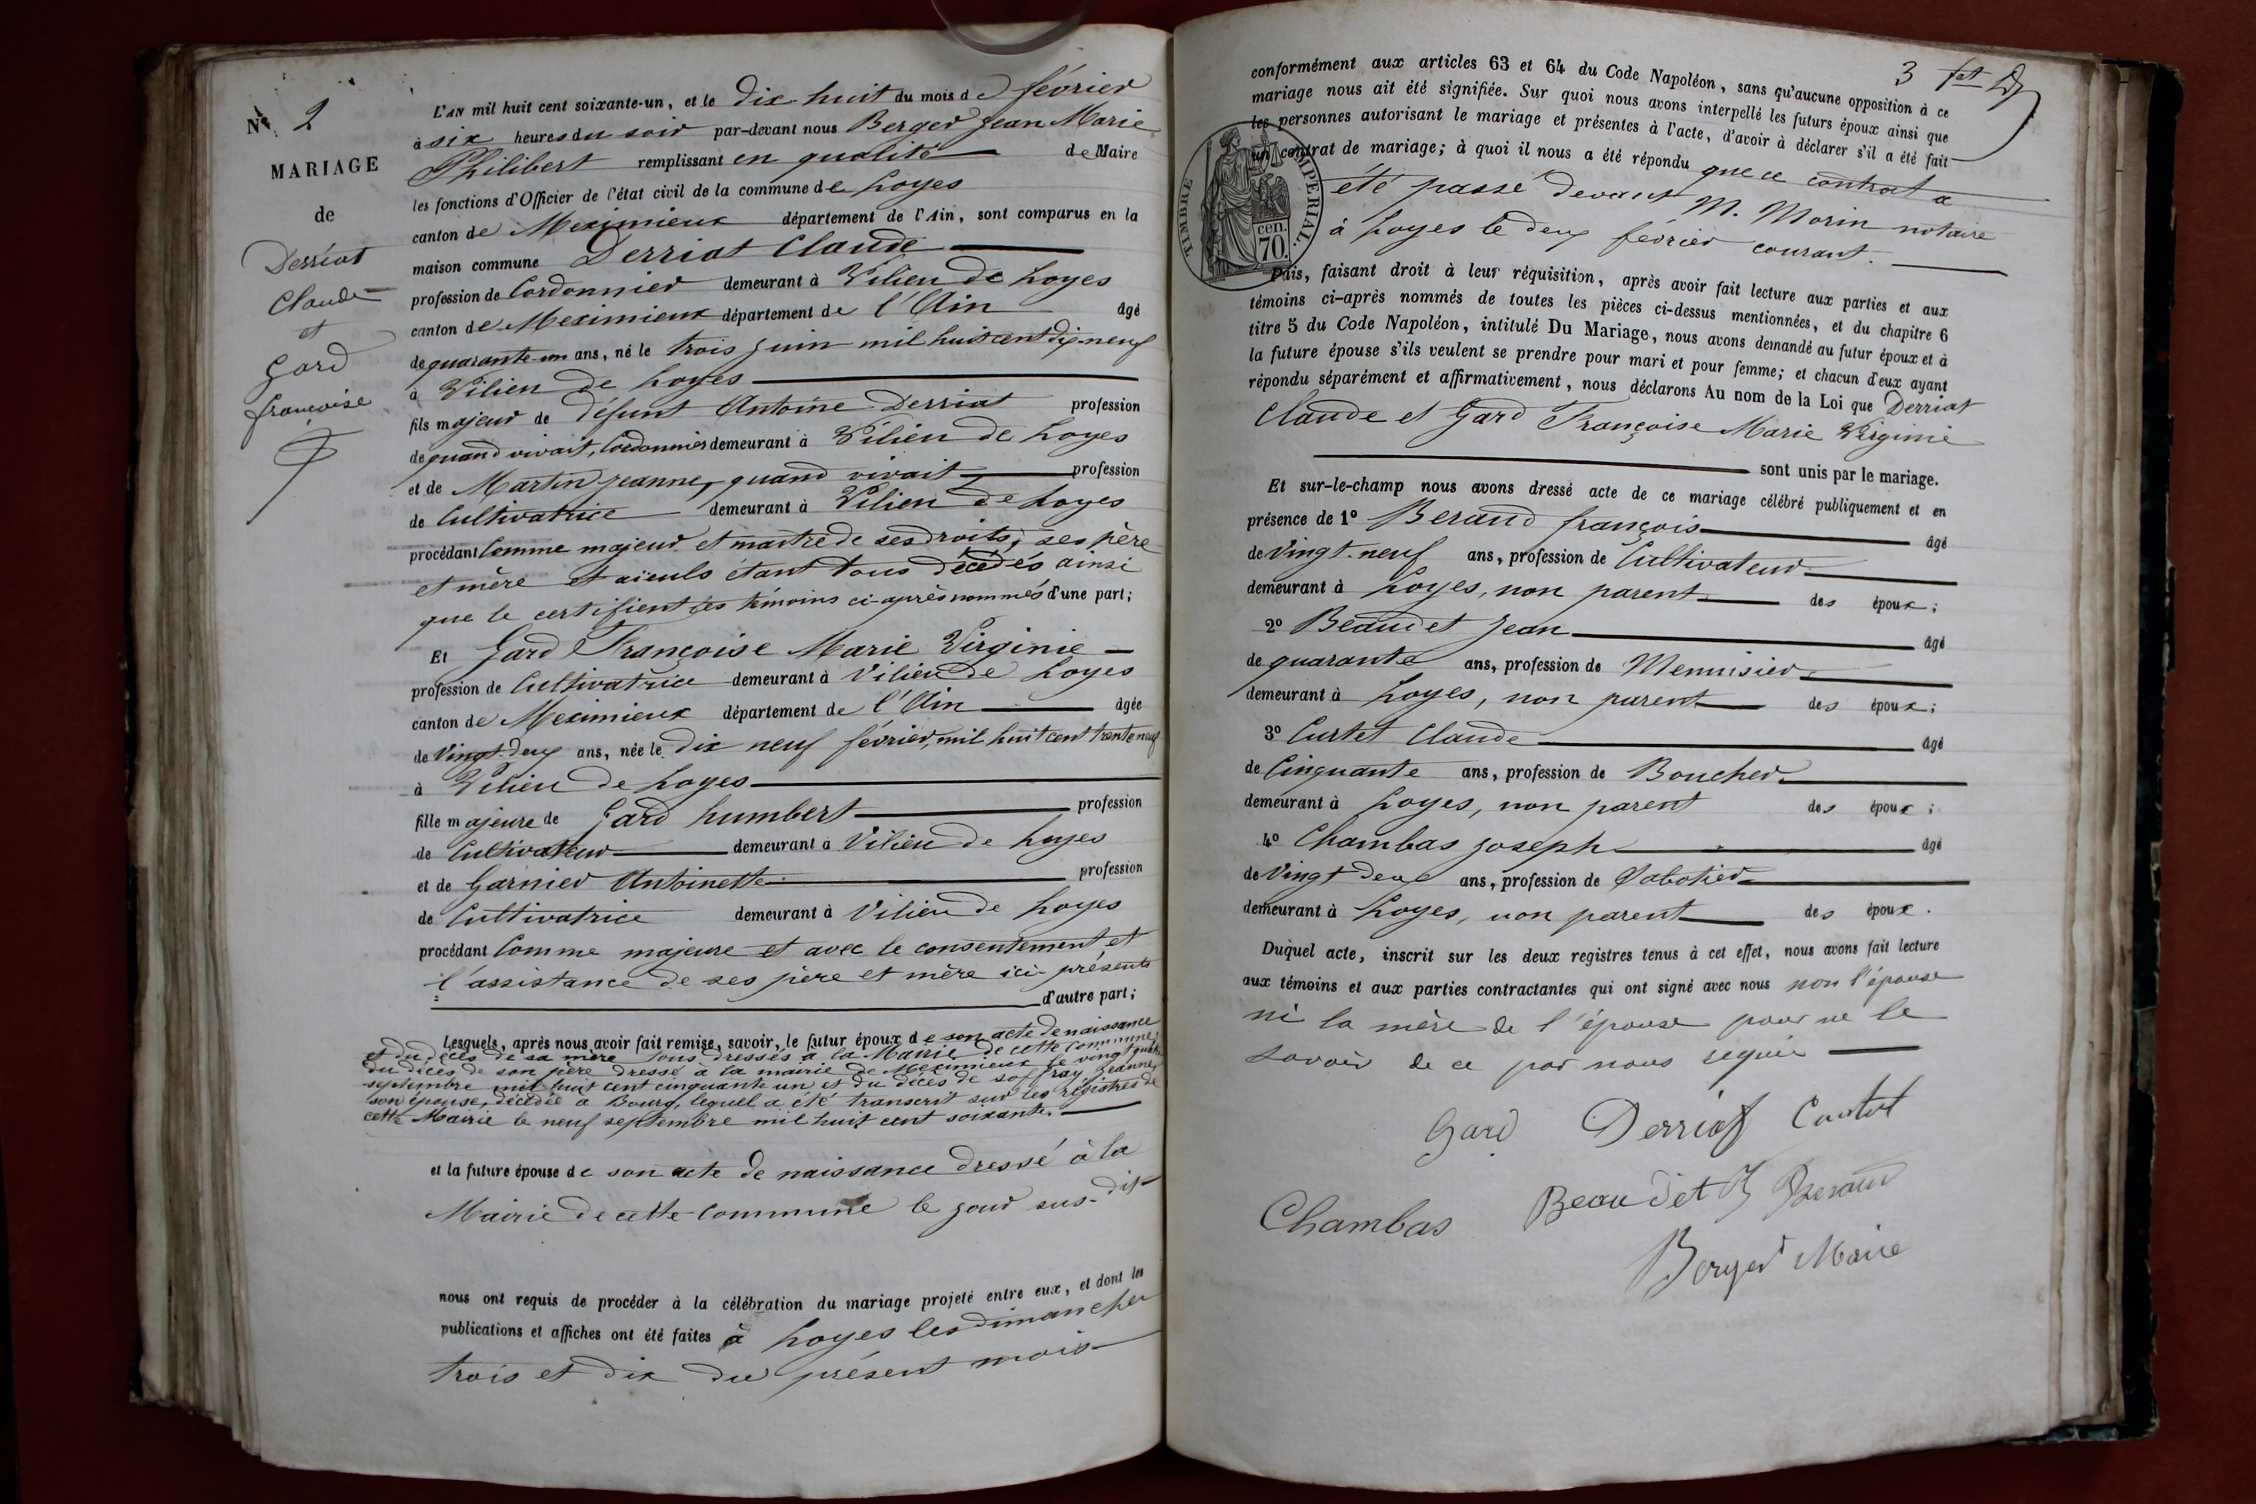 N° 2
MARIAGE
de
Derriat
Claude
et
Gard
françoise
L'AN mil huit cent soixante-un, et le dix huit du mois de février
à six heures du soir par-devant nous Berger Jean Marie
Philibert remplissant en qualité de Maire
les fonctions d'Officier de l'état civil de la commune de Loyes
canton de Meximieux département de l'Ain, sont comparus en la
maison commune Derriat Claude
profession de Cordonnier demeurant à Vilieu de Loyes
canton de Meximieux département de l'Ain âgé
de quarante-un ans, né le trois juin mil huit cent dix neuf
à Vilieu de Loyes
fils majeur de défunt Antoine Derriat profession
de quand vivait, Cordonnier demeurant à Vilieu de Loyes
et de Martin Jeanne, quand vivait, profession
de Cultivatrice demeurant à Vilieu de Loyes
procédant Comme majeur et maître de ses droits, ses père
et mère et aïeuls étant tous décédés ainsi
que le certifient les témoins ci-après nommés d'une part;
Et Gard Françoise Marie Virginie
profession de Cultivatrice demeurant à Vilieu de Loyes
canton de Meximieux département de l'Ain âgée
de Vingt-deux ans, née le dix neuf février, mil huit cent trente neuf
à Vilieu de Loyes
fille majeure de Gard humbert profession
de Cultivateur demeurant à Vilieu de Loyes
et de Garnier Antoinette profession
de Cultivatrice demeurant à Vilieu de Loyes
procédant Comme majeure et avec le consentement et
l'assistance de ses père et mère ici présents
d'autre part;
Lesquels, après nous avoir fait remise, savoir, le futur époux de son acte de naissance
et du décès de sa mère tous dressés à la Mairie de cette commune,
du décès de son père dressé à la mairie de Meximieux le vingt quatre
septembre mil huit cent cinquante un et du décès de Joffray Jeanne,
son épouse, décédée à Bourg, lequel a été transcrit sur les registres de
cette Mairie le neuf septembre mil huit cent soixante.
et la future épouse de son acte de naissance dressé à la
Mairie de cette commune le jour sus-dit
nous ont requis de procéder à la célébration du mariage projeté entre eux, et dont les
publications et affiches ont été faites à Loyes les dimanches
trois et dix du présent mois
3 fet
conformément aux articles 63 et 64 du Code Napoléon, sans qu'aucune opposition à ce
mariage nous ait été signifiée. Sur quoi nous avons interpellé les futurs époux ainsi que
les personnes autorisant le mariage et présentes à l'acte, d'avoir à déclarer s'il a été fait
un contrat de mariage; à quoi il nous a été répondu que ce contrat a
été passé devant M. Morin notaire
à Loyes le deux février courant.
TIMBRE IMPERIAL.
cen.
70.
Puis, faisant droit à leur réquisition, après avoir fait lecture aux parties et aux
témoins ci-après nommés de toutes les pièces ci-dessus mentionnées, et du chapitre 6
titre 5 du Code Napoléon, intitulé Du Mariage, nous avons demandé au futur époux et à
la future épouse s'ils veulent se prendre pour mari et pour femme; et chacun d'eux ayant
répondu séparément et affirmativement, nous déclarons Au nom de la Loi que Derriat
Claude et Gard Françoise Marie Virginie
sont unis par le mariage.
Et sur-le-champ nous avons dressé acte de ce mariage célébré publiquement et en
présence de 1° Beraud françois âgé
de Vingt-neuf ans, profession de Cultivateur
demeurant à Loyes, non parent des époux;
2° Beaudet Jean âgé
de quarante ans, profession de Menuisier
demeurant à Loyes, non parent des époux;
3° Curtet Claude âgé
de Cinquante ans, profession de Boucher
demeurant à Loyes, non parent des époux;
4° Chambas Joseph âgé
de Vingt deux ans, profession de Sabotier
demeurant à Loyes, non parent des époux.
Duquel acte, inscrit sur les deux registres tenus à cet effet, nous avons fait lecture
aux témoins et aux parties contractantes qui ont signé avec nous non l'épouse
ni la mère de l'épouse pour ne le
savoir de ce par nous requis
Gard Derriat Curtet
Chambas Beaudet J Beraud
Berger Maire